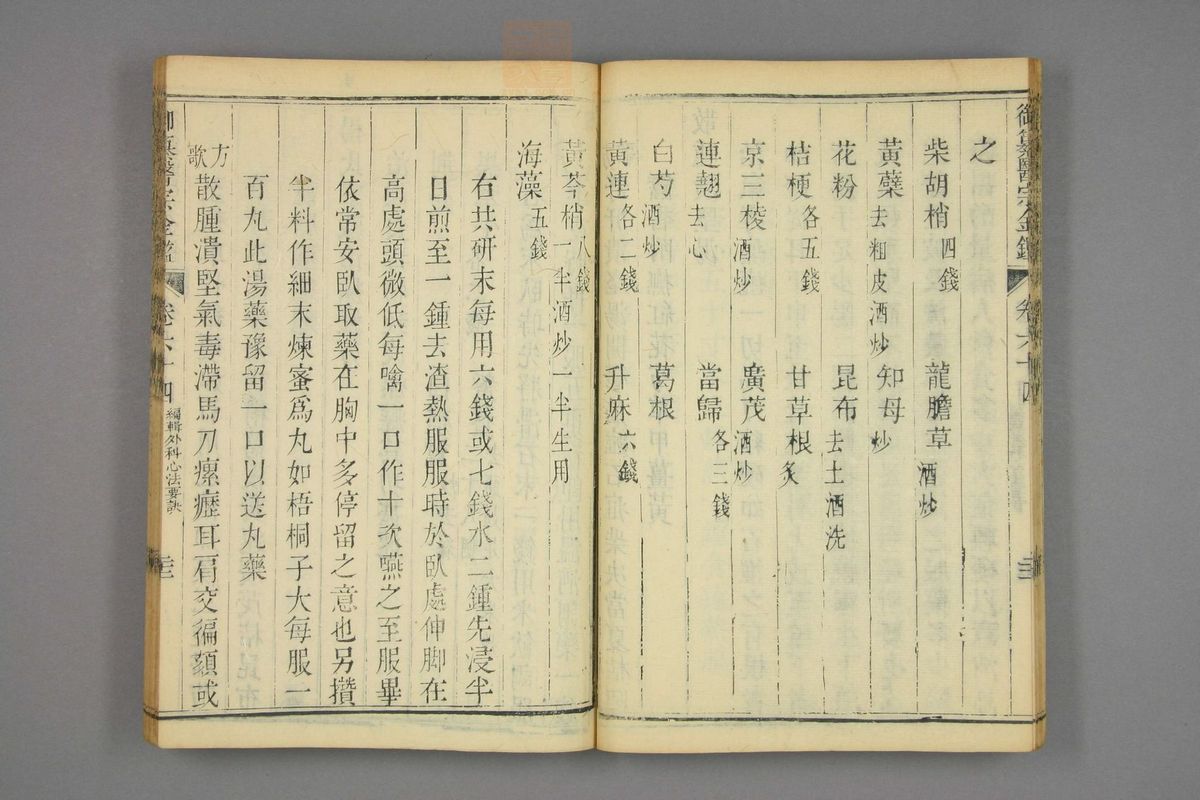 御纂醫宗金鑑 卷六十四
之
柴胡梢四錢 龍膽草酒炒
黃蘗去粗皮酒炒 知母炒
花粉 昆布去土酒洗
桔梗各五錢 甘草根炙
京三棱酒炒 廣茂酒炒
連翹去心 當歸各三錢
白芍酒炒 葛根
黃連各二錢 升麻六錢
黃芩梢八錢一半酒炒一半生用
海藻五錢
右共研末每用六錢或七錢水二鍾先浸半
日煎至一鍾去渣熱服服時於臥處伸脚在
高處頭微低每噙一口作十次嚥之至服畢
依常安臥取藥在胸中多停留之意也另攢
半料作細末煉蜜爲丸如梧桐子大每服一
百丸此湯藥豫留一口以送丸藥
方歌 散腫潰堅氣毒滯馬刀瘰癧耳肩交徧頦或
御纂醫宗金鑑 卷六十四 編輯外科心法要訣